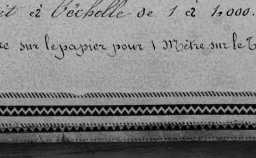 à l'échelle de 1 à 1,000.
sur le papier pour 1 Mètre sur le